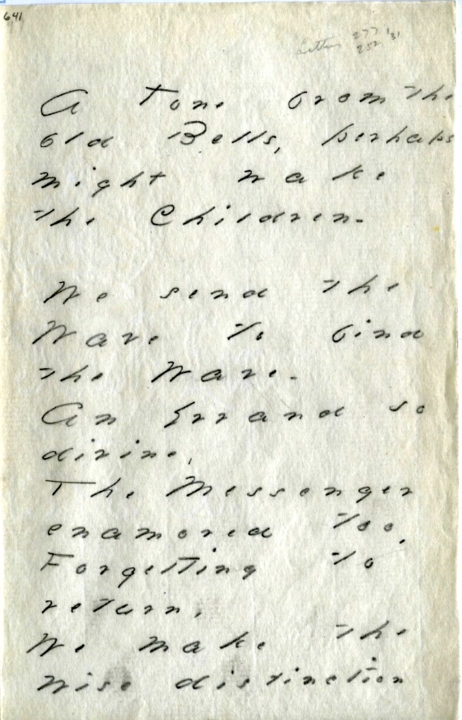 641
Letters 277 '31
252
A Tone from the
old Bells, perhaps
might wake
the Children.
We send the
Wave to find
the Wave.
An Errand so
divine,
The Messenger
enamored too,
Forgetting to
return,
We make the
wise distinction